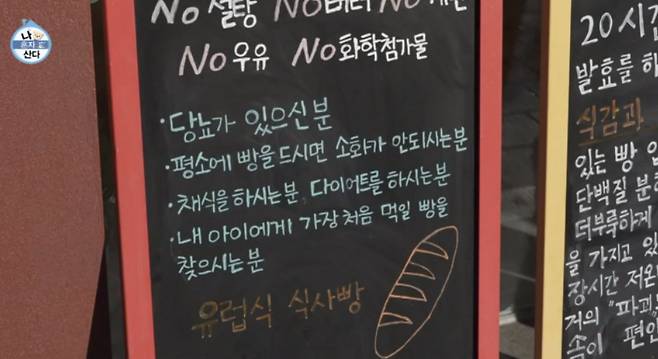 나 혼자 산다
No 설탕 No 버터 No 계란
No 우유 No 화학첨가물
· 당뇨가 있으신 분
· 평소에 빵을 드시면 소화가 안되시는분
· 채식을 하시는분, 다이어트를 하시는분
· 내 아이에게 가장 처음 먹일 빵을
찾으시는 분
유럽식 식사빵
20시간
발효를 하
식감과
있는 빵 입
단백질 분
더부룩하게
을 가지고 있
장시간 저온
거의 "파괴
속이 편안